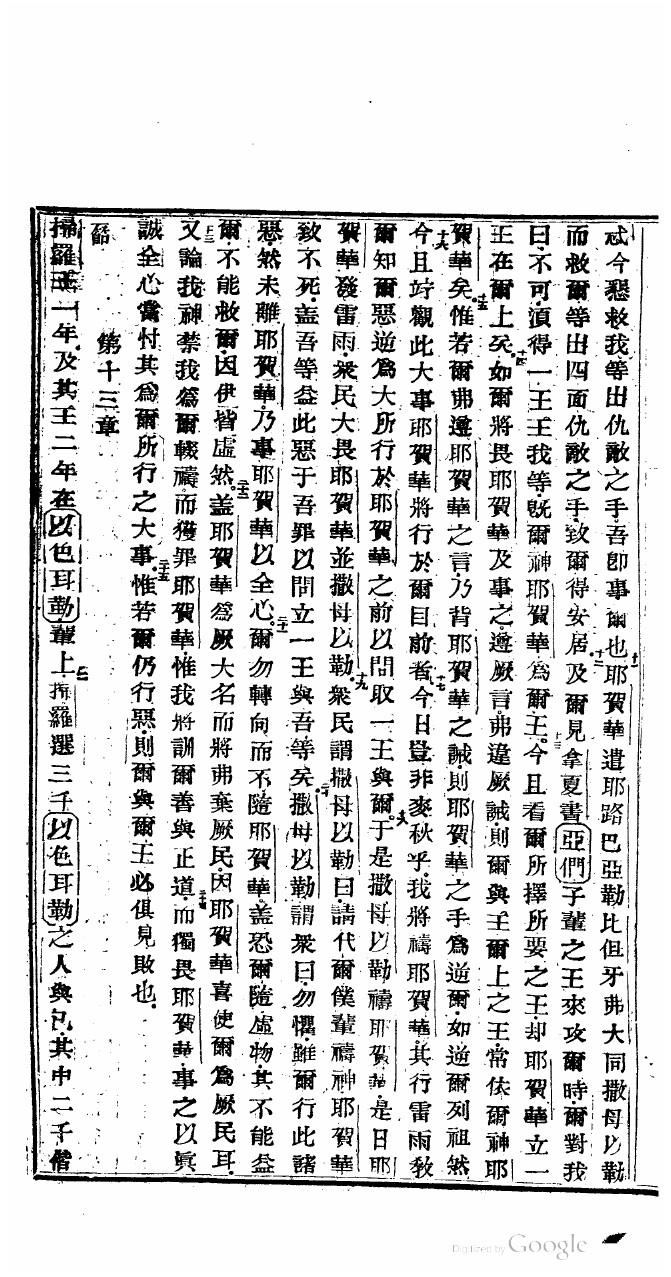 忒今懇救我等出仇敵之手吾卽事爾也耶賀華遣耶路巴亞勒比但牙弗大同撒母以勒
而救爾等出四面仇敵之手致爾得安居及爾見拿夏書亞們子輩之王來攻爾時爾對我
曰不可湏得一王王我等旣爾神耶賀華爲爾王今且看爾所擇所要之王却耶賀華立一
王在爾上矣如爾將畏耶賀華及事之遵厥言弗違厥誡則爾與王爾上之王常依爾神耶
賀華矣惟若爾弗遵耶賀華之言乃背耶賀華之誡則耶賀華之手爲逆爾如逆爾列祖然
今且竚觀此大事耶賀華將行於爾目前者今日豈非麥秋乎我將禱耶賀華其行雷雨敎
爾知爾惡逆爲大所行於耶賀華之前以問取一王與爾于是撒母以勒禱耶賀華是日耶
賀華發雷雨衆民大畏耶賀華並撒母以勒衆民謂撒母以勒曰請代爾僕輩禱神耶賀華
致不死盖吾等益此惡于吾罪以問立一王與吾等矣撒母以勒謂衆曰勿懼雖爾行此諸
惡然未離耶賀華乃事耶賀華以全心爾勿轉向而不隨耶賀華盖恐爾隨虛物其不能益
爾不能救爾因伊皆虛然盖耶賀華爲厥大名而將弗棄厥民因耶賀華喜使爾爲厥民耳
又論我神禁我爲爾輟禱而獲罪耶賀華惟我將訓爾善與正道而獨畏耶賀華事之以眞
誠全心當忖其爲爾所行之大事惟若爾仍行惡則爾與爾王必俱見敗也
第十三章
掃羅王一年及其王二年在以色耳勒輩上掃羅選三千以色耳勒之人與已其中二千偕
Digitized by Google